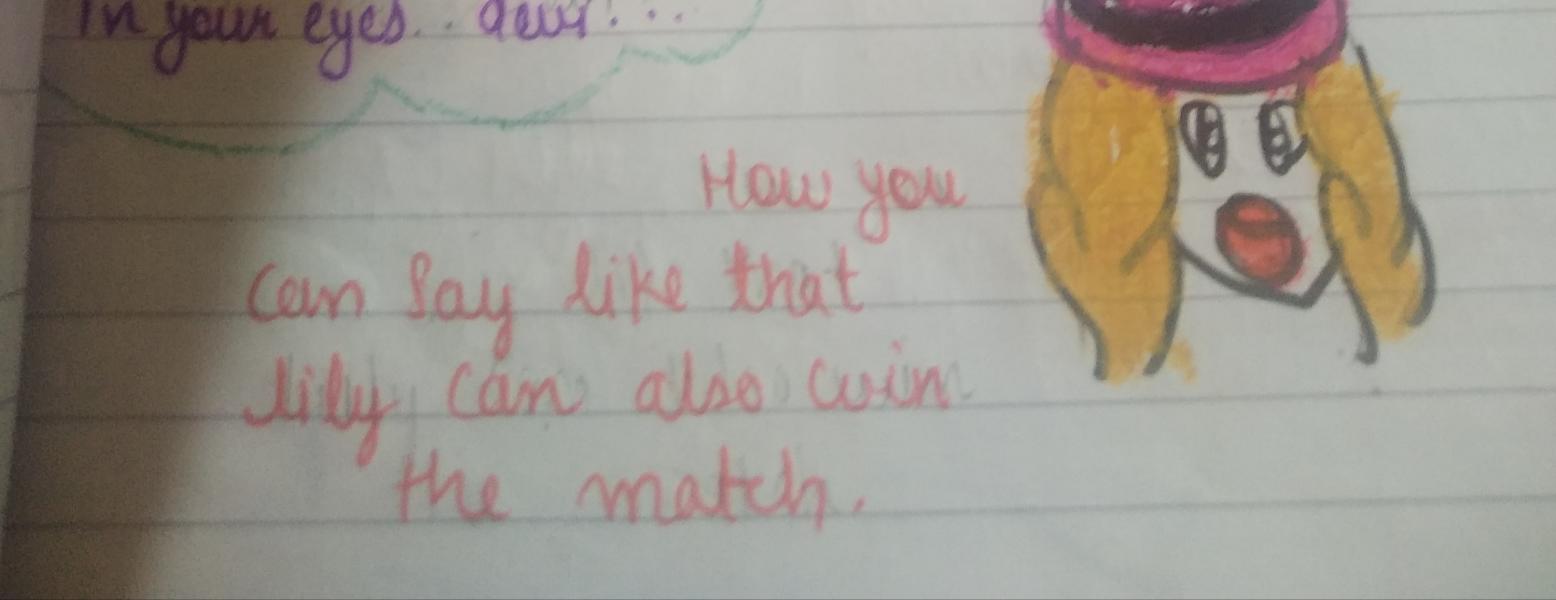 In your eyes.. dear...
How you
can say like that
lily can also win
the match.